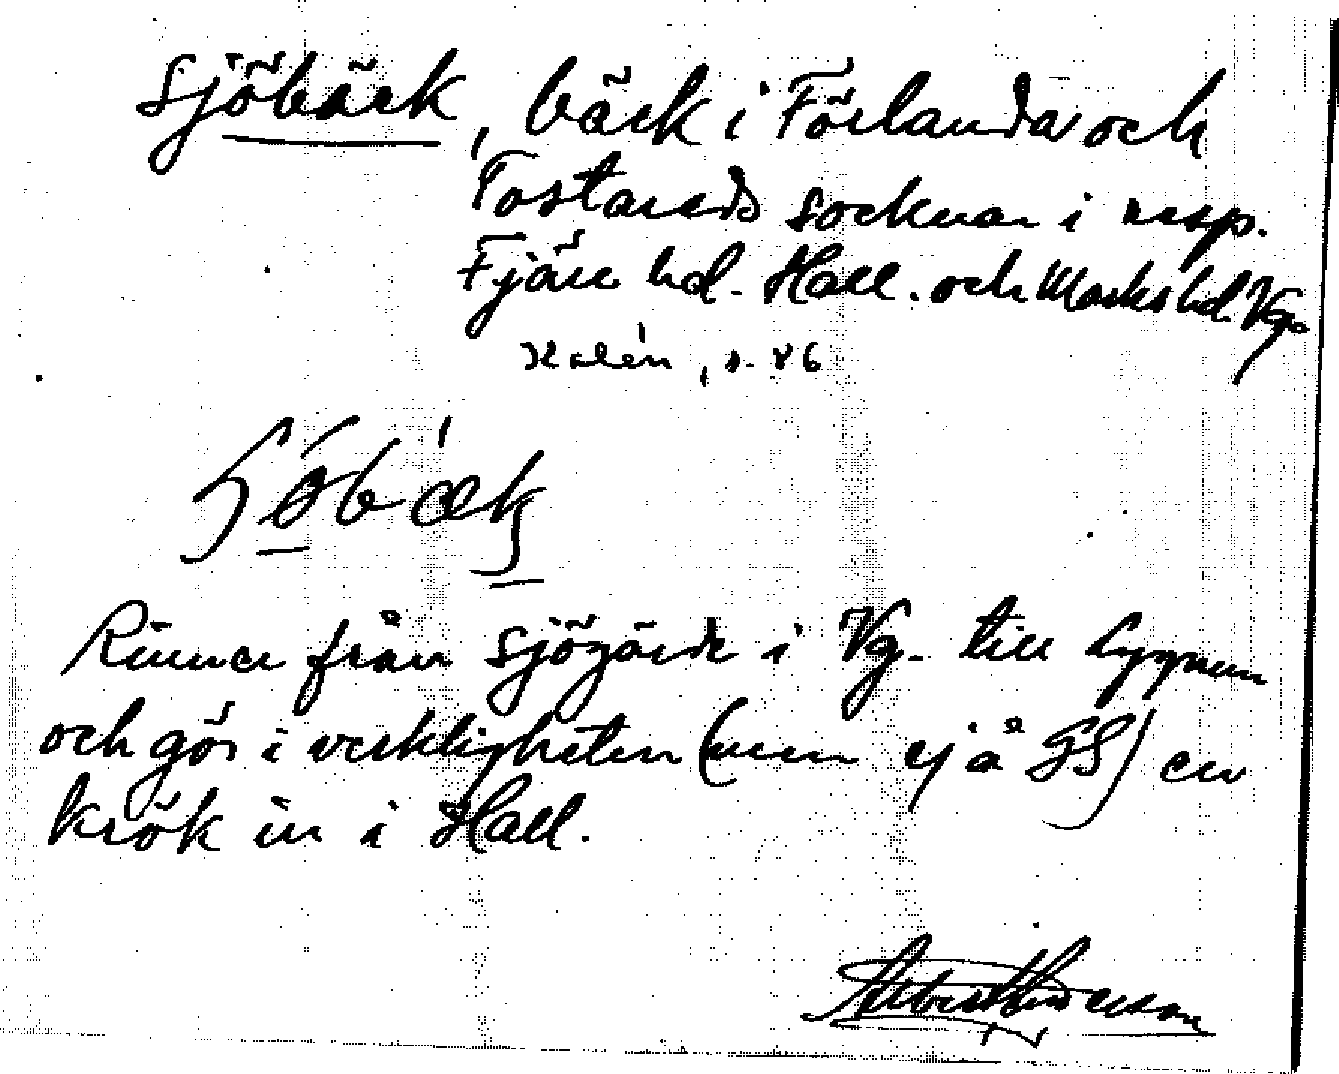 Sjöbäck, bäck i Förlanda och
Tostareds socknar i resp.
Fjäre hd. Hall. och Marks hd. Vg.
Kalén, s. 86
Rinner från Sjögärde i Vg. till Lygnern
och gör i verkligheten (men ej å GS) en
krök in i Hall.
Albert Anderson